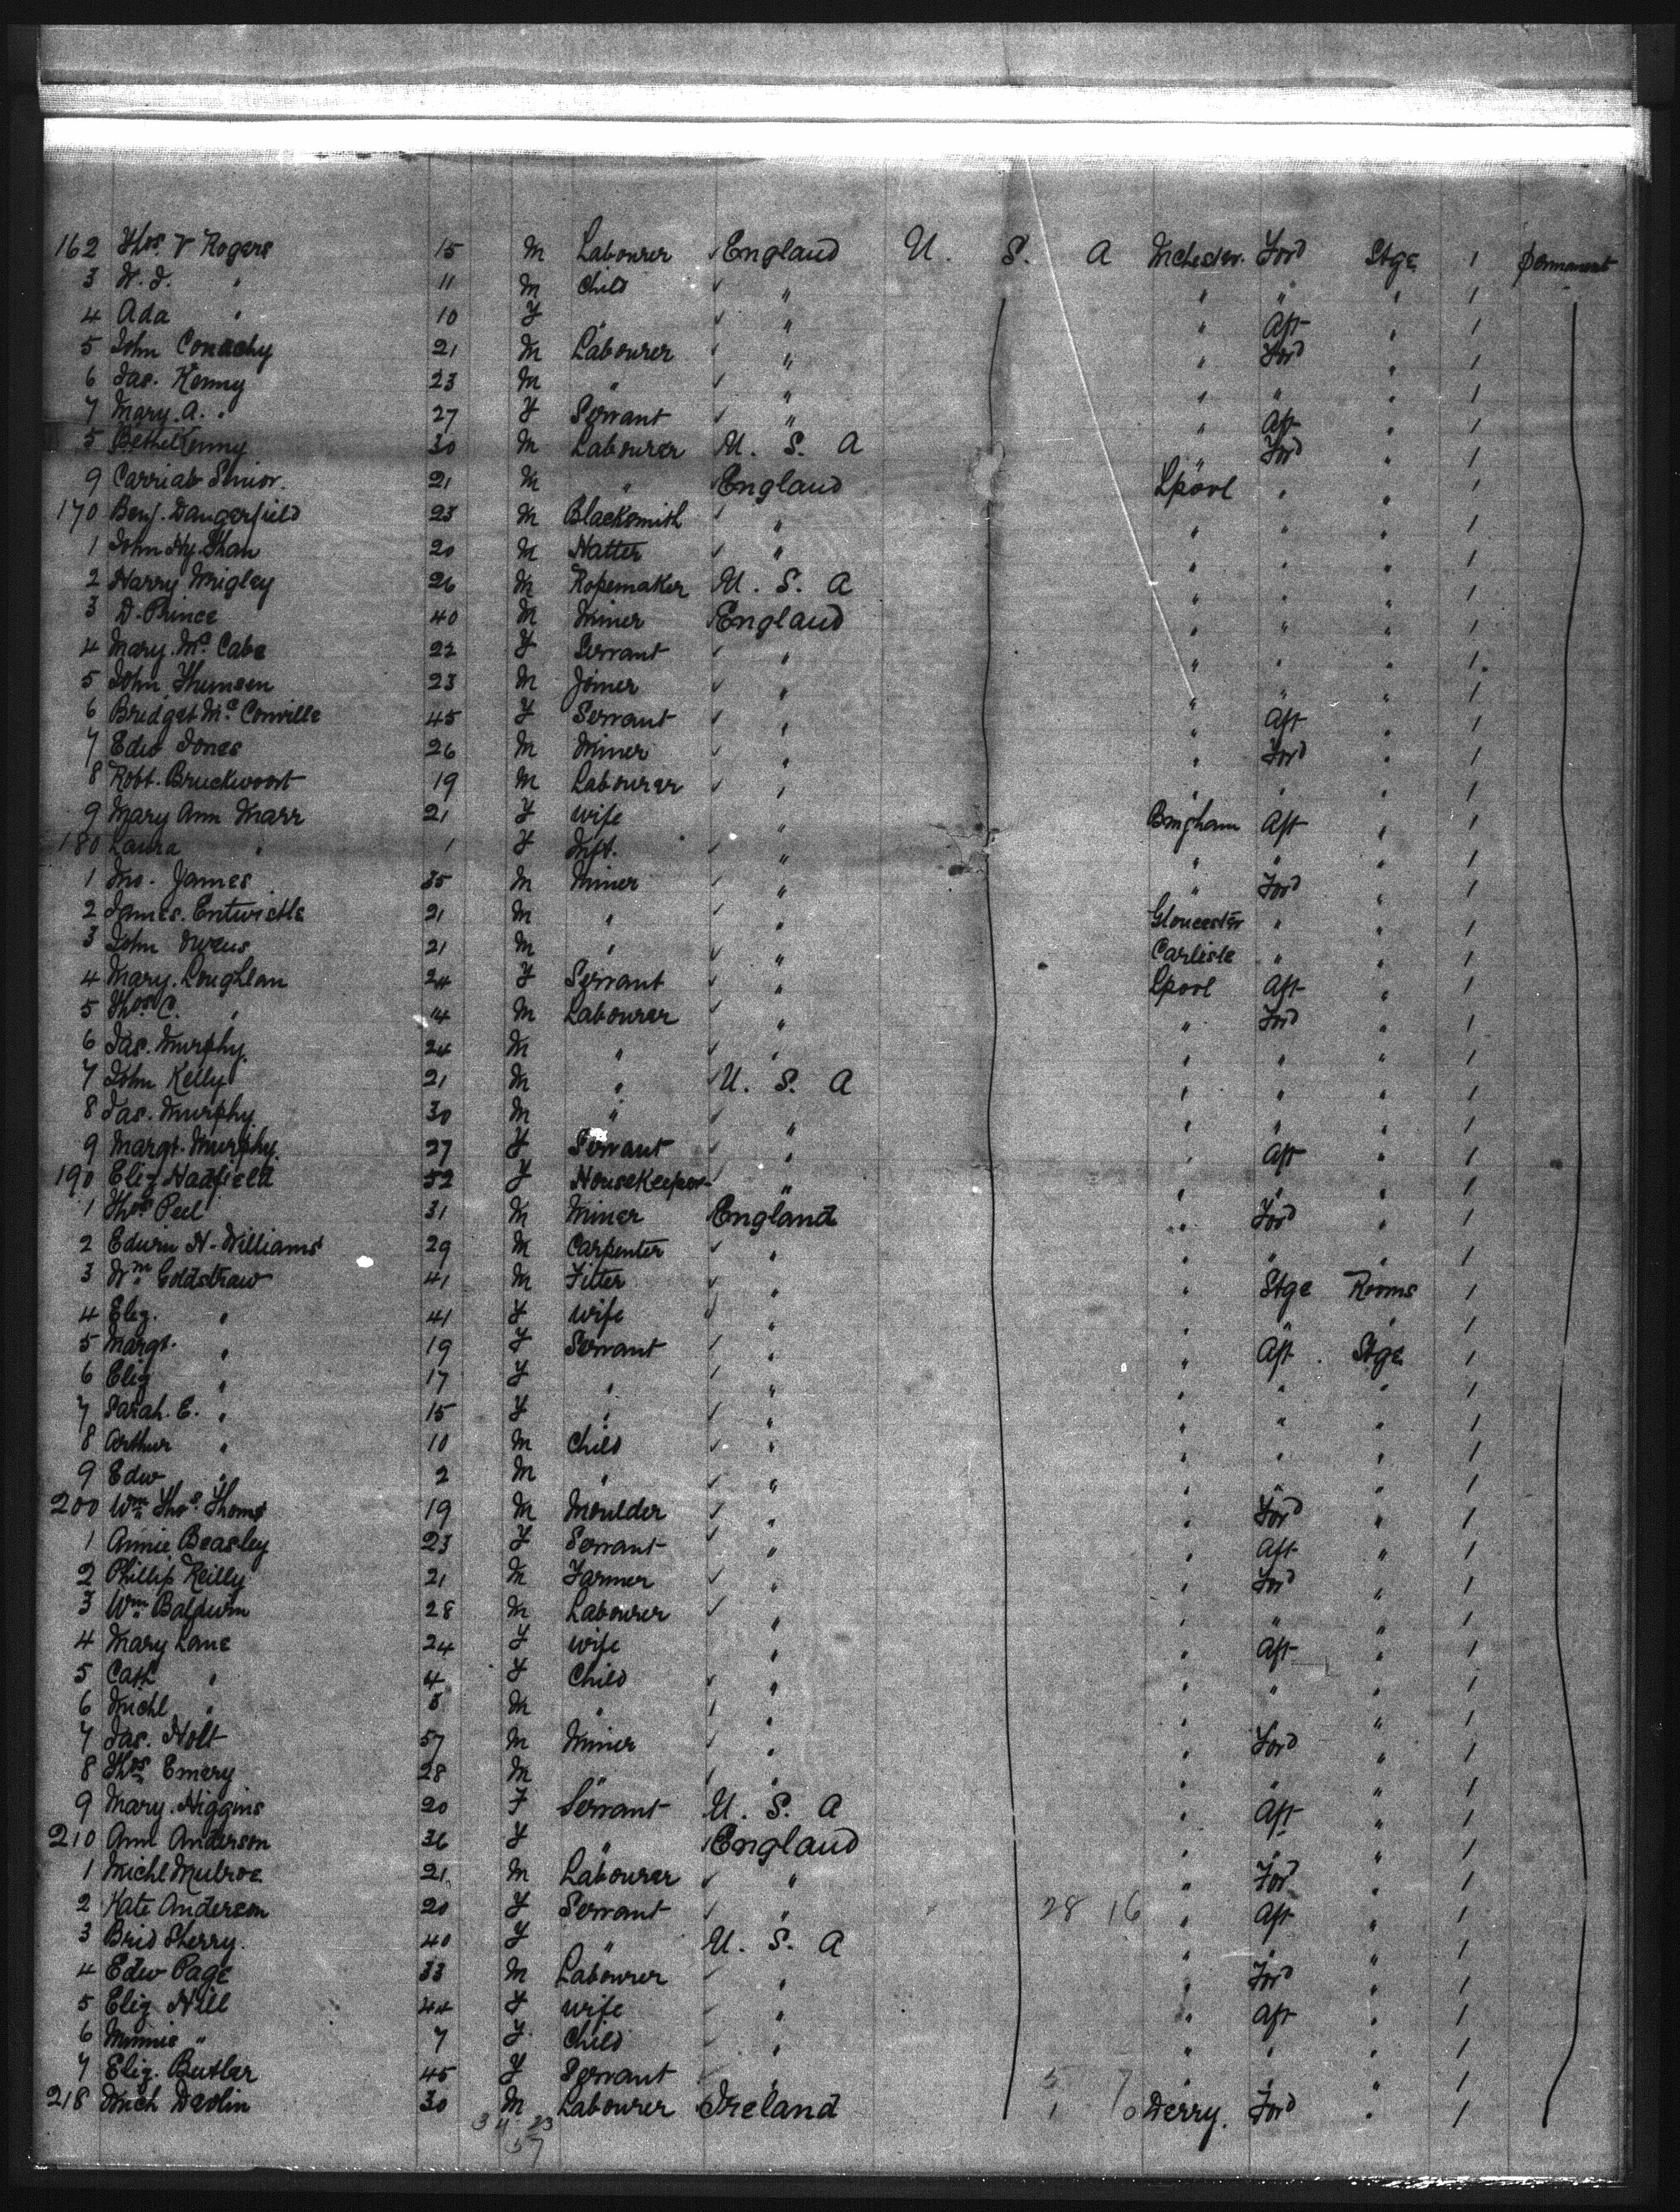 162 Thos. V Rogers 15 M Labourer England U. S. A Mchester. Ford Stge 1 permanent
3 W. J. " 11 M Child " " " " 1
4 Ada " 10 F " " " Aft " 1
5 John Conachy 21 M Labourer " " Ford " 1
6 Jas. Kenny 23 M " " " " " 1
7 Mary. A. " 27 F Servant " " Aft " 1
Kenny 30 M Labourer U. S. A " Ford " 1
9 Senior. 21 M " England Lpool " " 1
170 Benj. Dangerfield 23 M Blacksmith " " " " 1
1 John Hy. 20 M Hatter " " " " 1
2 Harry Wrigley 26 M Ropemaker U. S. A " " " 1
3 D. Prince 40 M Miner England " " " 1
4 Mary. Mc. Cabe 22 F Servant " " " " 1
5 John 23 M Joiner " " " " 1
6 Bridget Mc. Conville 45 F Servant " " Aft " 1
7 Edw Jones 26 M Miner " " Ford " 1
8 Robt. 19 M Labourer " " " " 1
9 Mary Ann Marr 21 F Wife " Bmgham Aft " 1
180 Laura " 1 F Inft. " " " " 1
1 Jno. James 35 M Miner " " Ford " 1
2 James. Entwistle 21 M " " Gloucester " " 1
3 John Owens 21 M " " Carlisle " " 1
4 Mary. Loughlan 24 F Servant " Lpool Aft " 1
5 Thos. C. " 14 M Labourer " " Ford " 1
6 Jas. Murphy. 24 M " " " " " 1
7 John Kelly 21 M " U. S. A " " " 1
8 Jas. Murphy 30 M " " " " " 1
9 Margt. Murphy. 27 F Servant " " Aft " 1
190 Eliz Hadfield 52 F Housekeeper " " " " 1
1 Thos Peel 31 M Miner England " Ford " 1
2 Edwin H. Williams 29 M Carpenter " " " " 1
3 Wm. Goldstraw 41 M Fitter " " Stge Rooms 1
4 Eliz. " 41 F Wife " " " " 1
5 Margt. " 19 F Servant " " Aft. Stge 1
6 Eliz " 17 F " " " " " 1
7 Sarah. E. " 15 F " " " " " 1
8 Arthur " 10 M Child " " " " 1
9 Edw " 2 M " " " " " 1
200 Wm Thos. Thoms 19 M Moulder " " Ford " 1
1 Annie Beasley 23 F Servant " " Aft " 1
2 Phillip Reilly 21 M Farmer " " Ford " 1
3 Wm Baldwin 28 M Labourer " " " " 1
4 Mary Lane 24 F Wife " " Aft " 1
5 Cath " 4 F Child " " " " 1
6 Michl " M " " " " " 1
7 Jas. Holt 57 M Miner " " Ford " 1
8 Thos Emery 28 M " " " " " 1
9 Mary. Higgins 20 F Servant U. S. A " Aft " 1
210 Ann Anderson 36 F " England " " " 1
1 Michl Mulroe 21 M Labourer " " Ford " 1
2 Kate Anderson 20 F Servant " 28 16 " Aft " 1
3 Brid Sherry. 40 F " U. S. A " " " 1
4 Edw Page 33 M Labourer " " Ford " 1
5 Eliz Hill 44 F Wife " " Aft " 1
6 Minnie " 7 F Child " " " " 1
7 Eliz. Butler 45 F Servant " 5 7 " " " 1
218 Mich Devlin 30 M Labourer Ireland 1 0 Derry. Ford " 1
34 23
57